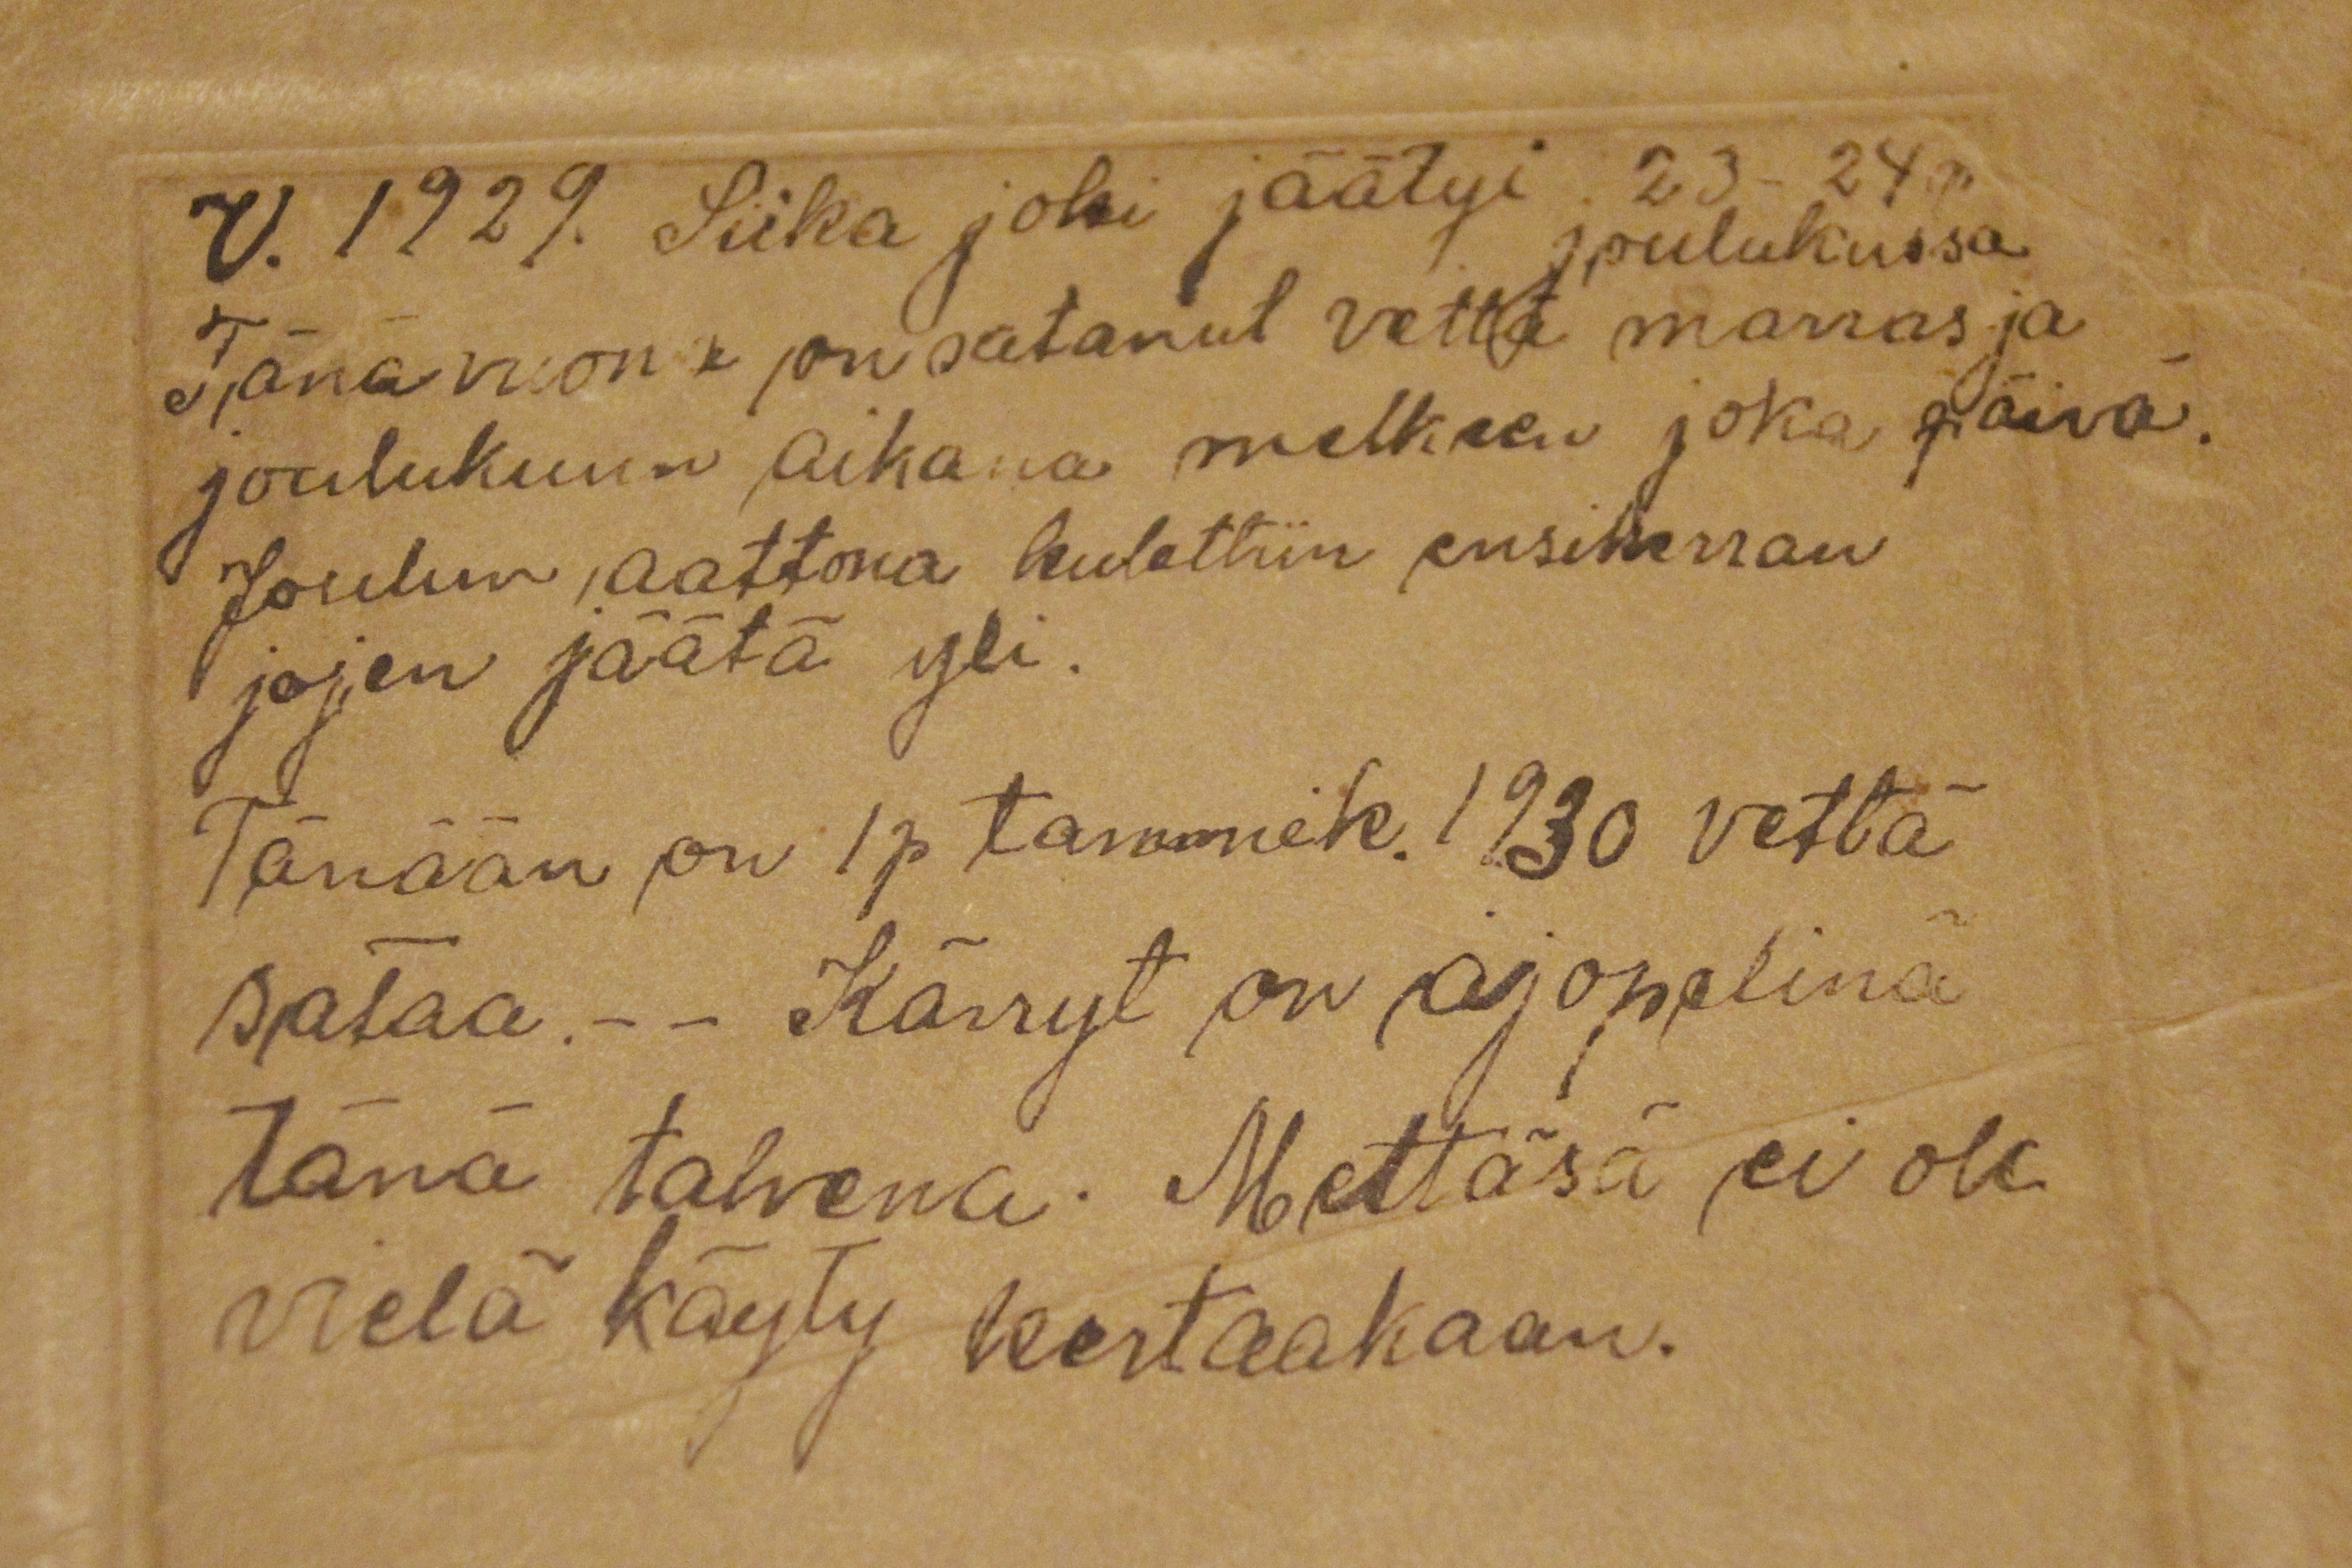 V. 1929. Siika joki jäätyi 23-24 p
joulukussa
Tänä vuonx on satanut vettä marras ja
joulukuun aikana melkeen joka päivä.
Joulun aattona kulettiin ensikerran
jojen jäätä yli.
Tänään on 1 p tammik. 1930 vettä
sataa. -- Kärryt on ajopelinä
tänä talvena. Mettäsä ei ole
vielä käyty kertaakaan.